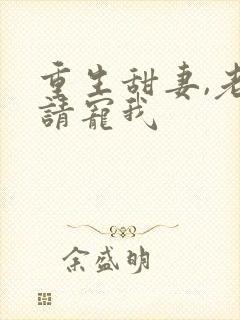 重生甜妻,老
請寵我
余盛明